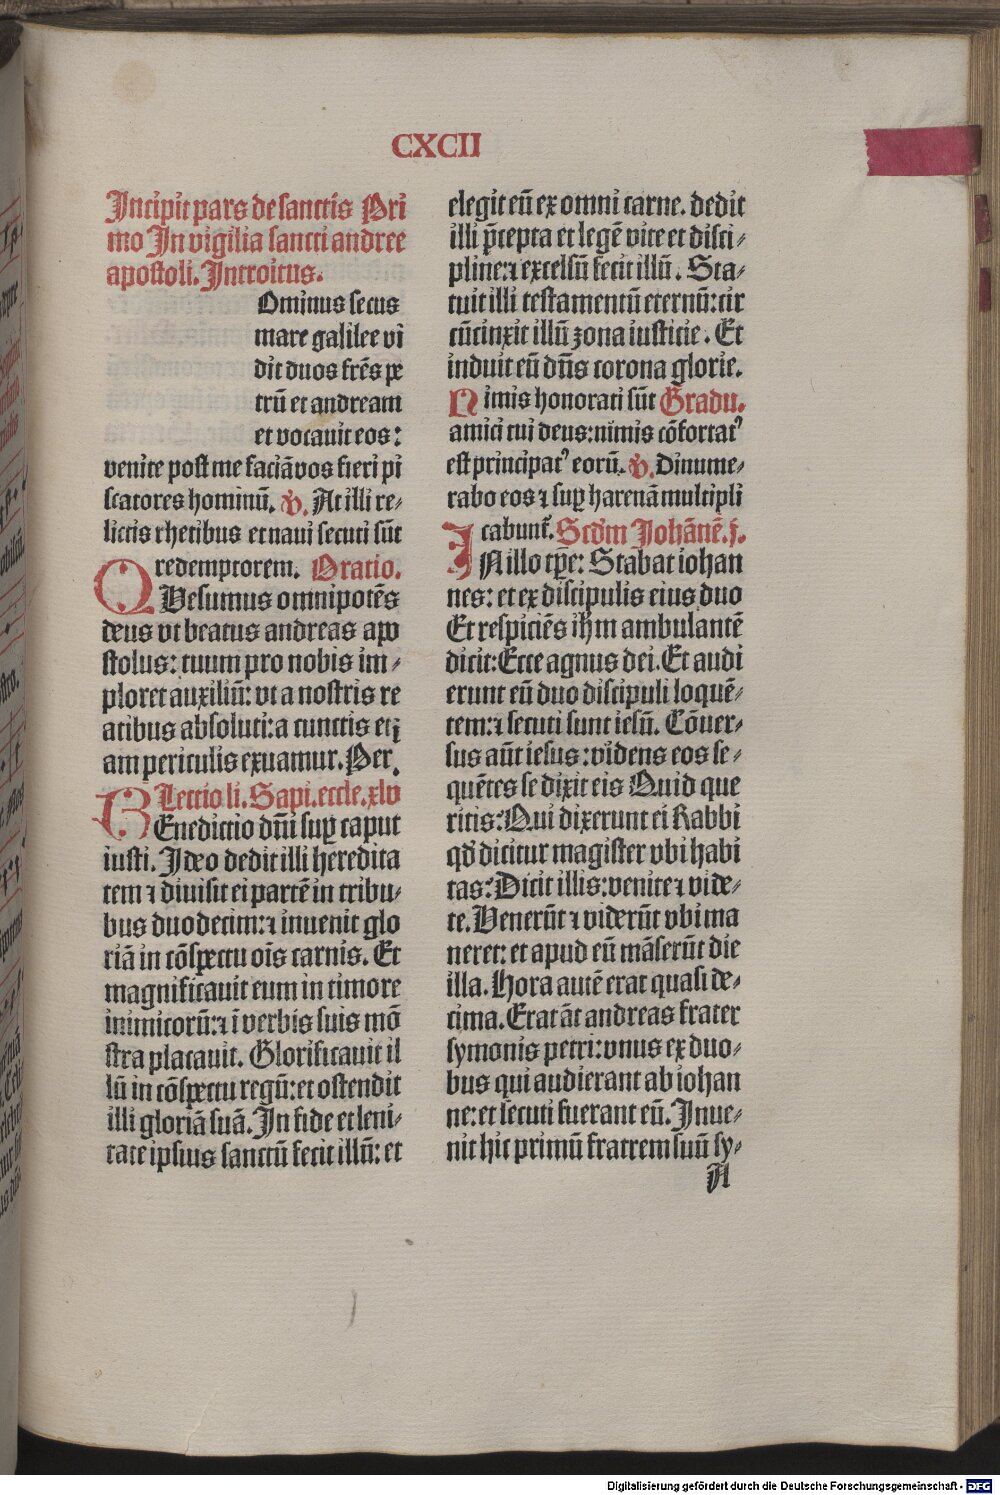 CXCII
Incipit pars de sanctis Pri
mo In vigilia sancti andree
apostoli. Introitus.
Ominus secus
mare galilee vi
dit duos frēs pe
trū et andream
et vocavit eos:
venite post me faciā vos fieri pi
scatores hominū. ℣. At illi re-
lictis rhetibus et navi secuti sūt
redemptorem. Oratio.
QVesumus omnipotēs
deus vt beatus andreas apo
stolus: tuum pro nobis im-
ploret auxiliū: vt a nostris re
atibus absoluti: a cunctis eti
am periculis exuamur. Per.
Lectio li. Sapi. eccle. xlv
BEnedictio dn̄i suꝑ caput
iusti. Ideo dedit illi heredita
tem ⁊ divisit ei partē in tribu-
bus duodecim: ⁊ invenit glo
riā in cōspectu oīs carnis. Et
magnificavit eum in timore
inimicorū: ⁊ ī verbis suis mō
stra placauit. Glorificavit il
lū in cōspectu regū: et ostendit
illi gloriā suā. In fide et leni-
tate ipsius sanctū fecit illū: et
elegit eū ex omni carne. dedit
illi p̄cepta et legē vite et disci-
pline: ⁊ excelsū fecit illū. Sta-
tuit illi testamentū eternū: cir
cūcinxit illū zona iusticie. Et
induit eū dn̄s corona glorie.
Nimis honorati sūt Gradu.
amici tui deus: nimis cōfortatꝰ
est principatꝰ eorū. ℣. Dinume-
rabo eos ⁊ suꝑ harenā multipli
cabunt̄. Scdm̄ Johānē. j.
INillo tp̄e: Stabat iohan
nes: et ex discipulis eius duo
Et respiciēs ih̄m ambulantē
dicit: Ecce agnus dei. Et audi
erunt eū duo discipuli loquē-
tem: ⁊ secuti sunt iesū. Cōuer-
sus aūt iesus: videns eos se-
quētes se dixit eis Quid que
ritis: Qui dixerunt ei Rabbi
qd̄ dicitur magister vbi habi
tas: Dicit illis: venite ⁊ vide-
te. Venerūt ⁊ viderūt vbi ma
neret: et apud eū māserūt die
illa. Hora autē erat quasi de-
cima. Erat āt andreas frater
symonis petri: vnus ex duo-
bus qui audierant ab iohan
ne: et secuti fuerant eū. Inue-
nit hic primū fratrem suū sy-
A
Digitalisierung gefördert durch die Deutsche Forschungsgemeinschaft - DFG